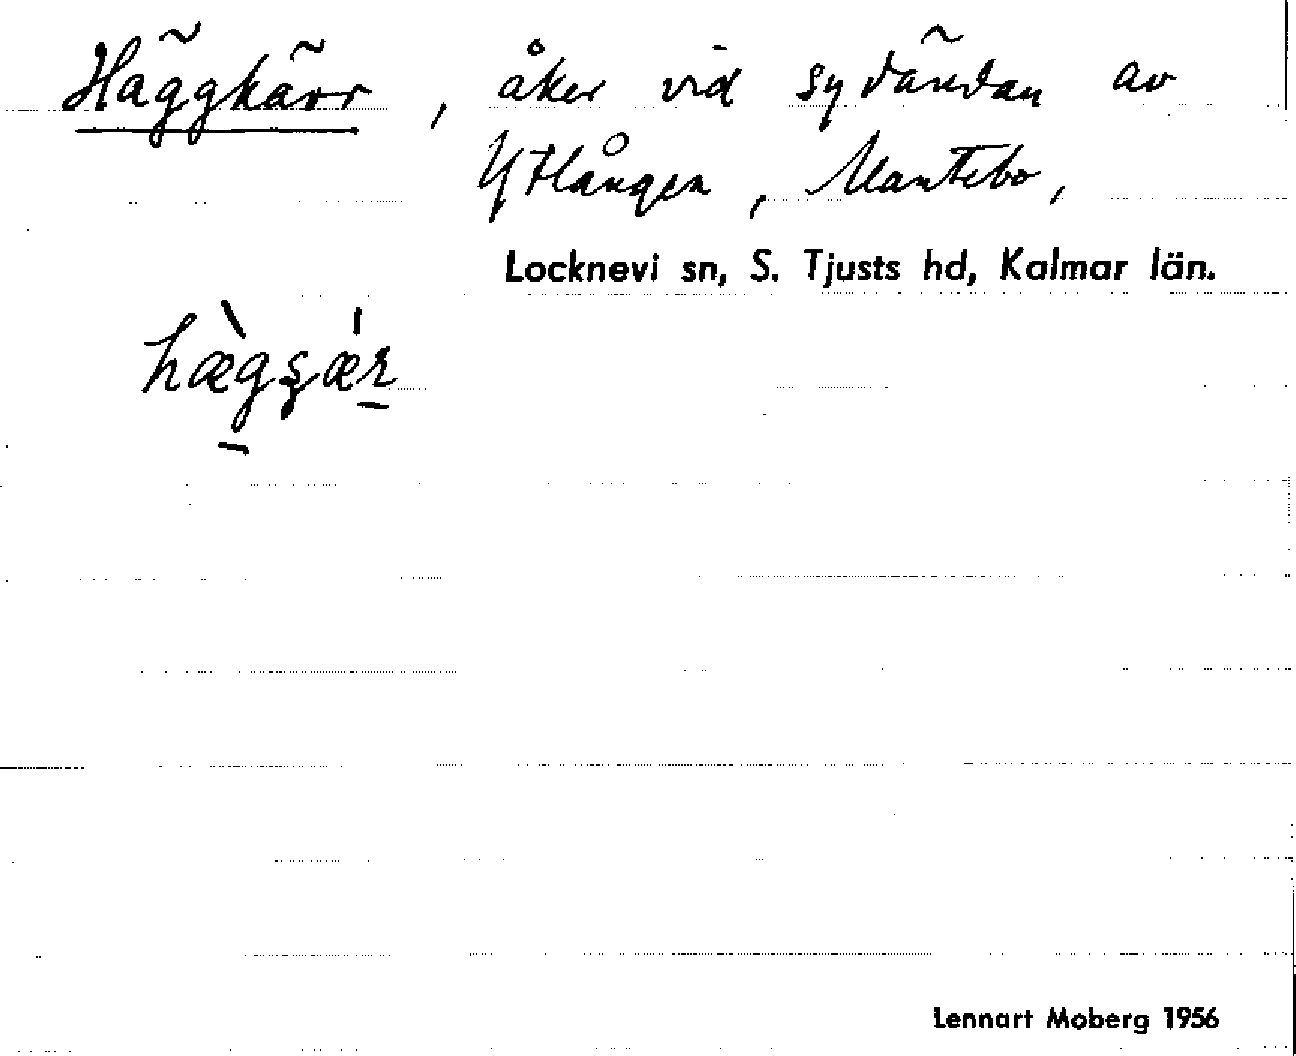 Häggkärr, åker vid sydändan av
Ytlången, Mantebo,
Locknevi sn, S. Tjusts hd, Kalmar län.
hæ̀gʂǽr
Lennart Moberg 1956